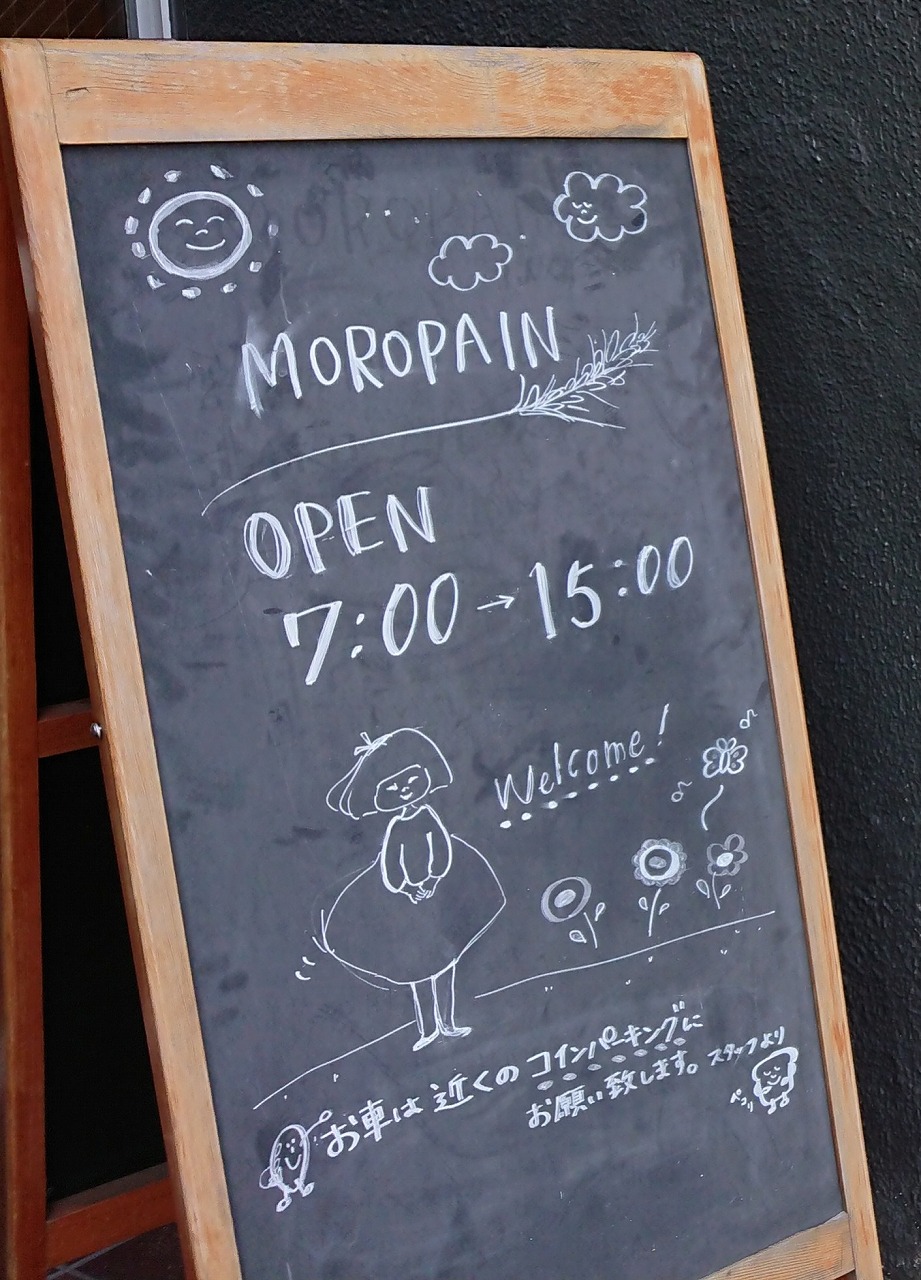 MOROPAIN
OPEN
7:00→15:00
Welcome!
お車は近くのコインパーキングに
お願い致します。スタッフより
ペコリ